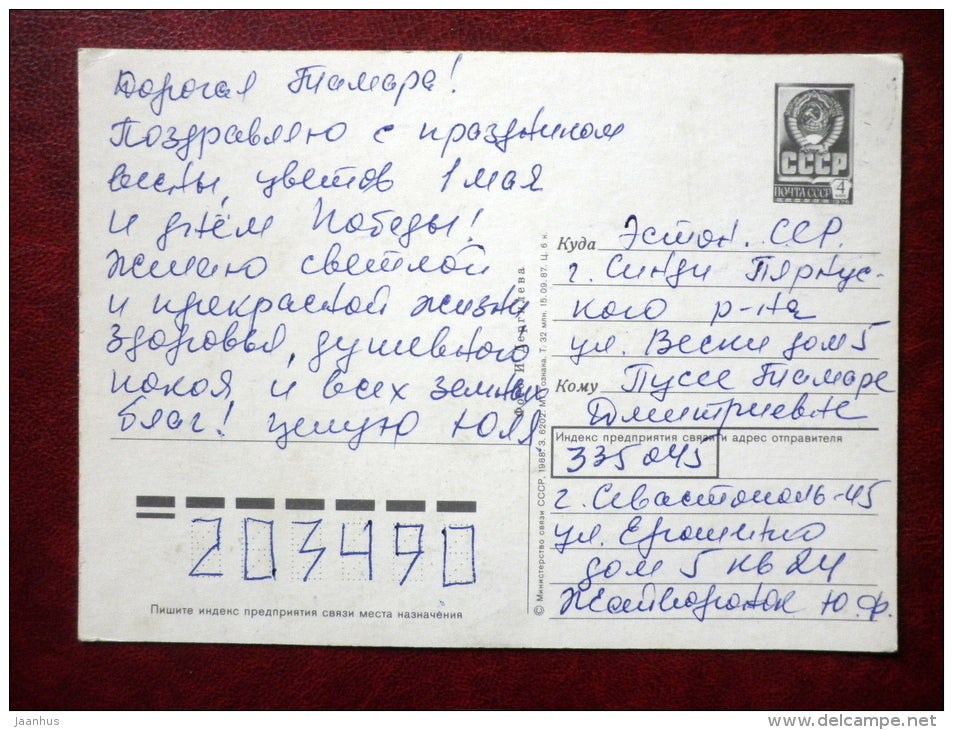 Дорогая Тамара!
Поздравляю с праздником
весны, цветов 1 мая
и днём Победы!
Желаю светлой
и прекрасной жизни
здоровья, душевного
покоя и всех земных
благ! целую Юля
СССР
ПОЧТА СССР
4
1976
Куда Эстон. ССР.
г. Синди Пярнус-
кого р-на
ул. Вески дом 5
Кому Пуссе Тамаре
Дмитриевне
Индекс предприятия связи и адрес отправителя
335045
г. Севастополь-45
ул. Ерошенко
дом 5 кв 24
Жайворонок Ю.Ф.
203490
Пишите индекс предприятия связи места назначения
© Министерство связи СССР, 1988. З. 6202. Гознака. Т. 32 млн. 15.09.87. Ц. 6 к.
Фото И.
jaanhus
www.delcampe.net